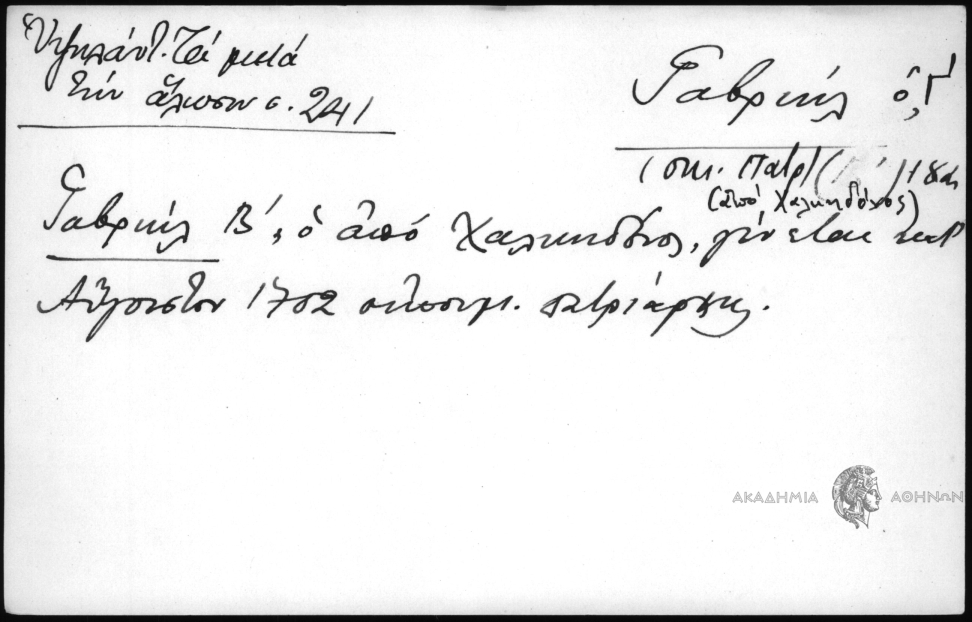 Ὑψηλάντ. Τά μετά
τήν ἅλωσιν σ. 241
Γαβριήλ ὁ Γ΄
(οικ. Πατρ)
(ἀπό Χαλκηδόνος)
Γαβριήλ Β΄, ὁ ἀπό Χαλκηδόνος, γίνεται κατ᾽
Αὔγουστον 1702 οἰκουμ. πατριάρχης.
ΑΚΑΔΗΜΙΑ ΑΘΗΝΩΝ